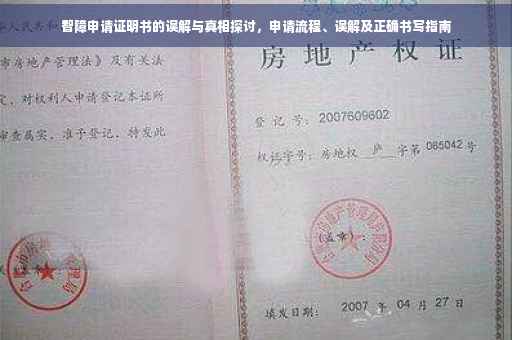 智障申请证明书的误解与真相探讨，申请流程、误解及正确书写指南
华人民共和
市房地产管理法》及有关法
定，对权利人申请登记本证所
审查属实，准予登记，特发此
房地产权证
登记号：2007609602
权证字号：房地权 庐 字第 065042 号
(盖章)：
填发日期：2007 年 04 月 27 日